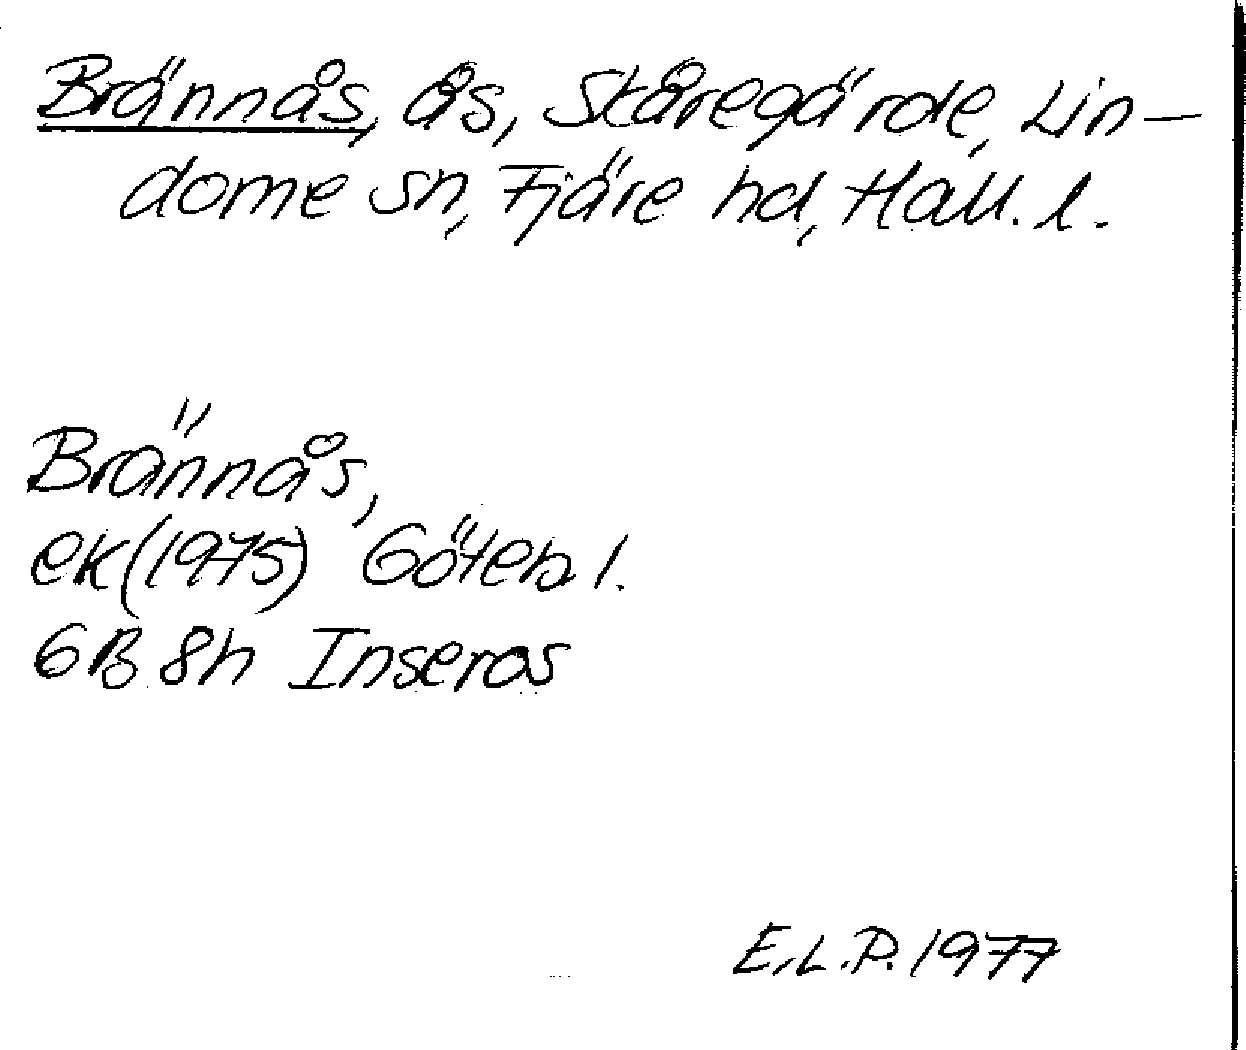 Brännås, ås, Skåregärde, Lin-
dome sn, Fjäre hd, Hall. l.
Brännås,
ek (1975) Göteb l.
6B 8h Inseros
E.L.P. 1977